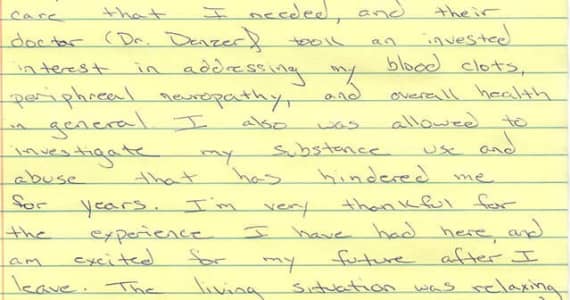 care that I needed, and their
doctor (Dr. Denzer) took an invested
interest in addressing my blood clots,
periphreal neuropathy, and overall health
in general. I also was allowed to
investigate my substance use and
abuse that has hindered me
for years. I'm very thankful for
the experience I have had here, and
am excited for my future after I
leave. The living situation was relaxing